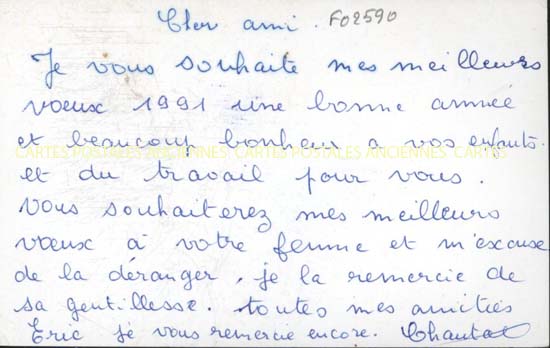 Cher ami. F02590
Je vous souhaite mes meilleurs
vœux 1991 une bonne année
et beaucoup bonheur a vos enfants.
CARTES POSTALES ANCIENNES CARTES POSTALES ANCIENNES CARTES
et du travail pour vous.
vous souhaiterez mes meilleurs
vœux à votre femme et m'excuse
de la déranger, je la remercie de
sa gentillesse. toutes mes amitiés
Eric je vous remercie encore. Chantal